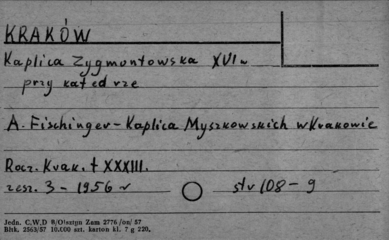 KRAKÓW
Kaplica Zygmuntowska XVI w
przy katedrze
A. Fischinger - Kaplica Myszkowskich w Krakowie
Rocz. Krak. t XXXIII.
zesz. 3 - 1956 r str 108 - 9
Jedn. C.W.D 8/Olsztyn Zam 2776 /on/ 57
Bltk. 2563/57 10.000 szt. karton kl. 7 g 220.